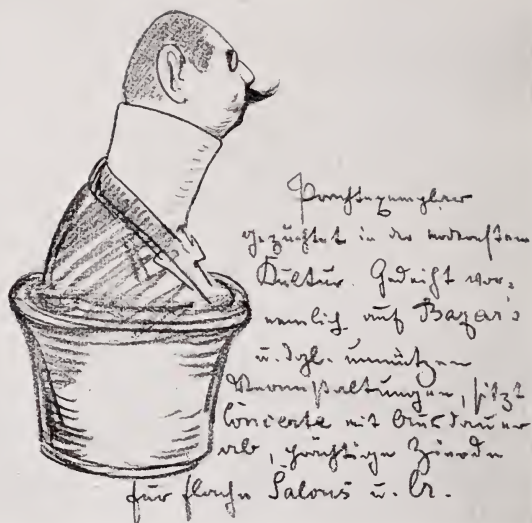 Prachtexemplar
gezüchtet in der modernsten
Kultur. Gedeiht vor-
nemlich auf Bazar's
u. dgl. unnützen
Veranstaltungen, sitzt
Concerte mit Ausdauer
ab, prächtige Zierde
für flache Salons u. Cr.